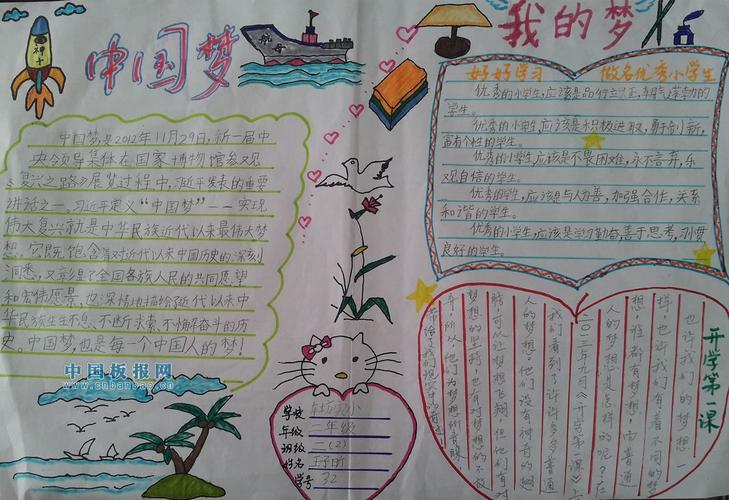 神十
中国梦
航母
我的梦
中国梦是2012年11月29日,新一届中
央领导集体在国家博物馆参观
《复兴之路》展览过程中,习近平发表的重要
讲话之一。习近平定义“中国梦”--实现
伟大复兴就是中华民族近代以来最伟大梦
想,它既饱含着对近代以来中国历史的深刻
洞悉,又彰显了全国各族人民的共同愿望
和宏伟愿景,也深情地描绘了近代以来中
华民族生生不息、不断求索、不懈奋斗的历
史。中国梦,也是每一个中国人的梦!
中国板报网
www.cnbanbao.cn
好好学习 做名优秀小学生
优秀的小学生,应该是品行立正,朝气蓬勃的
学生。
优秀的小学生,应该是积极进取,勇于创新,
富有个性的学生。
优秀的小学生,应该是不畏困难,永不言弃,乐
观自信的学生。
优秀的小学生,应该是与人为善,加强合作,关系
和谐的学生。
优秀的小学生,应该是学习勤奋善于思考,习惯
良好的学生。
开学第一课
也许我们的梦想一
样,也许我们有着不同的梦
想,谁都有梦想,而普通
人的梦想是怎样的呢?在
二〇一三年九月《开学第一课》上
我们看到了许许多多普通
人的梦想,他们没有神奇的翅
膀,可以让梦想飞翔,但他们有对
梦想的坚持,也有对梦想的不放
弃,所以,他们为梦想所
学校
年级 二年级
班级 二(2)
姓名
学号 32